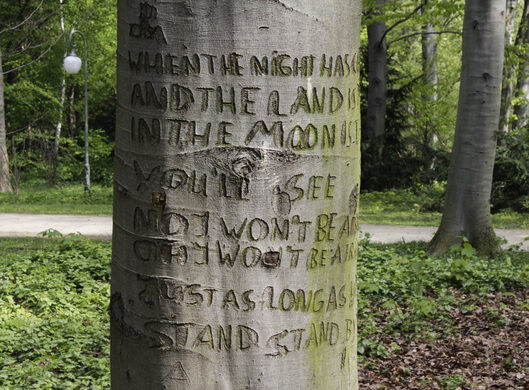 WHEN THE NIGHT HAS C
AND THE LAND IS
IN THE MOON IS T
YOU'LL SEE
NO I WON'T BE A
OH I WON'T BE A
JUST AS LONG AS
STAND STAND B